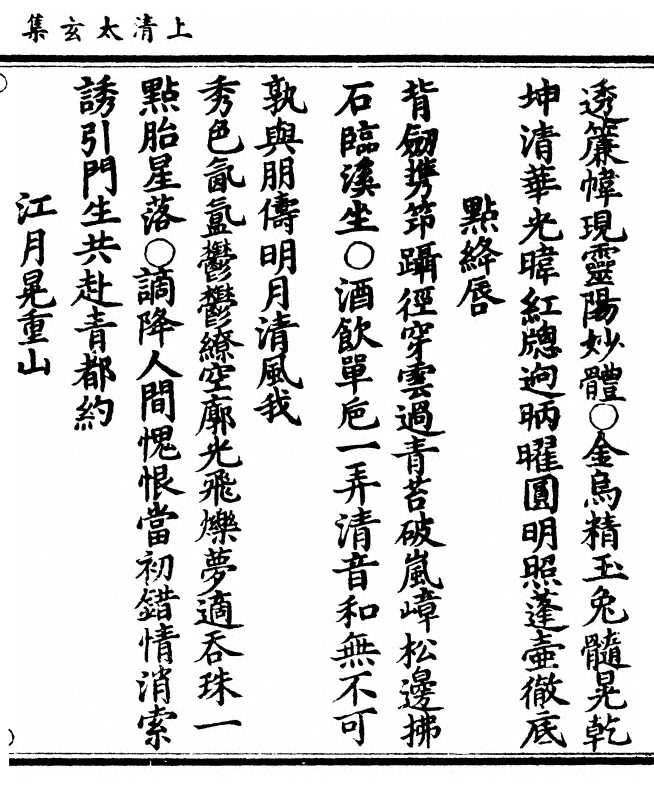 上清太玄集
透簾幃現靈陽妙體〇金烏精玉兔髓晃乾
坤清華光暐紅牕迥昞曜圓明照蓬壷徹底
點絳唇
背劒攜笻躡徑穿雲過青苔破嵐嶂松邊拂
石臨溪坐〇酒飲單巵一弄清音和無不可
孰與朋儔明月清風我
秀色氤氳鬱鬱繚空廓光飛爍夢適吞珠一
點胎星落〇謫降人間愧恨當初錯情消索
誘引門生共赴青都約
江月晃重山